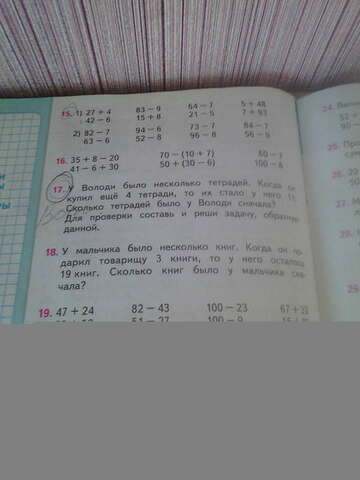 15. 1) 27 + 4 83 − 9 64 − 7 5 + 48
42 − 6 15 + 8 21 − 5 7 + 93
2) 82 − 7 94 − 6 73 − 7 84 − 7
63 − 6 52 − 8 96 − 8 56 − 9
16. 35 + 8 − 20 70 − (10 + 7)
41 − 6 + 30 50 + (30 − 6)
17. У Володи было несколько тетрадей. Когда он
купил ещё 4 тетради, то их стало у него
Сколько тетрадей было у Володи сначала?
Для проверки составь и реши задачу, обратную
данной.
18. У мальчика было несколько книг. Когда он по-
дарил товарищу 3 книги, то у него осталось
19 книг. Сколько книг было у мальчика сна-
чала?
19. 47 + 24 82 − 43 100 − 23
24.
25.
26.
27.
28.
29.